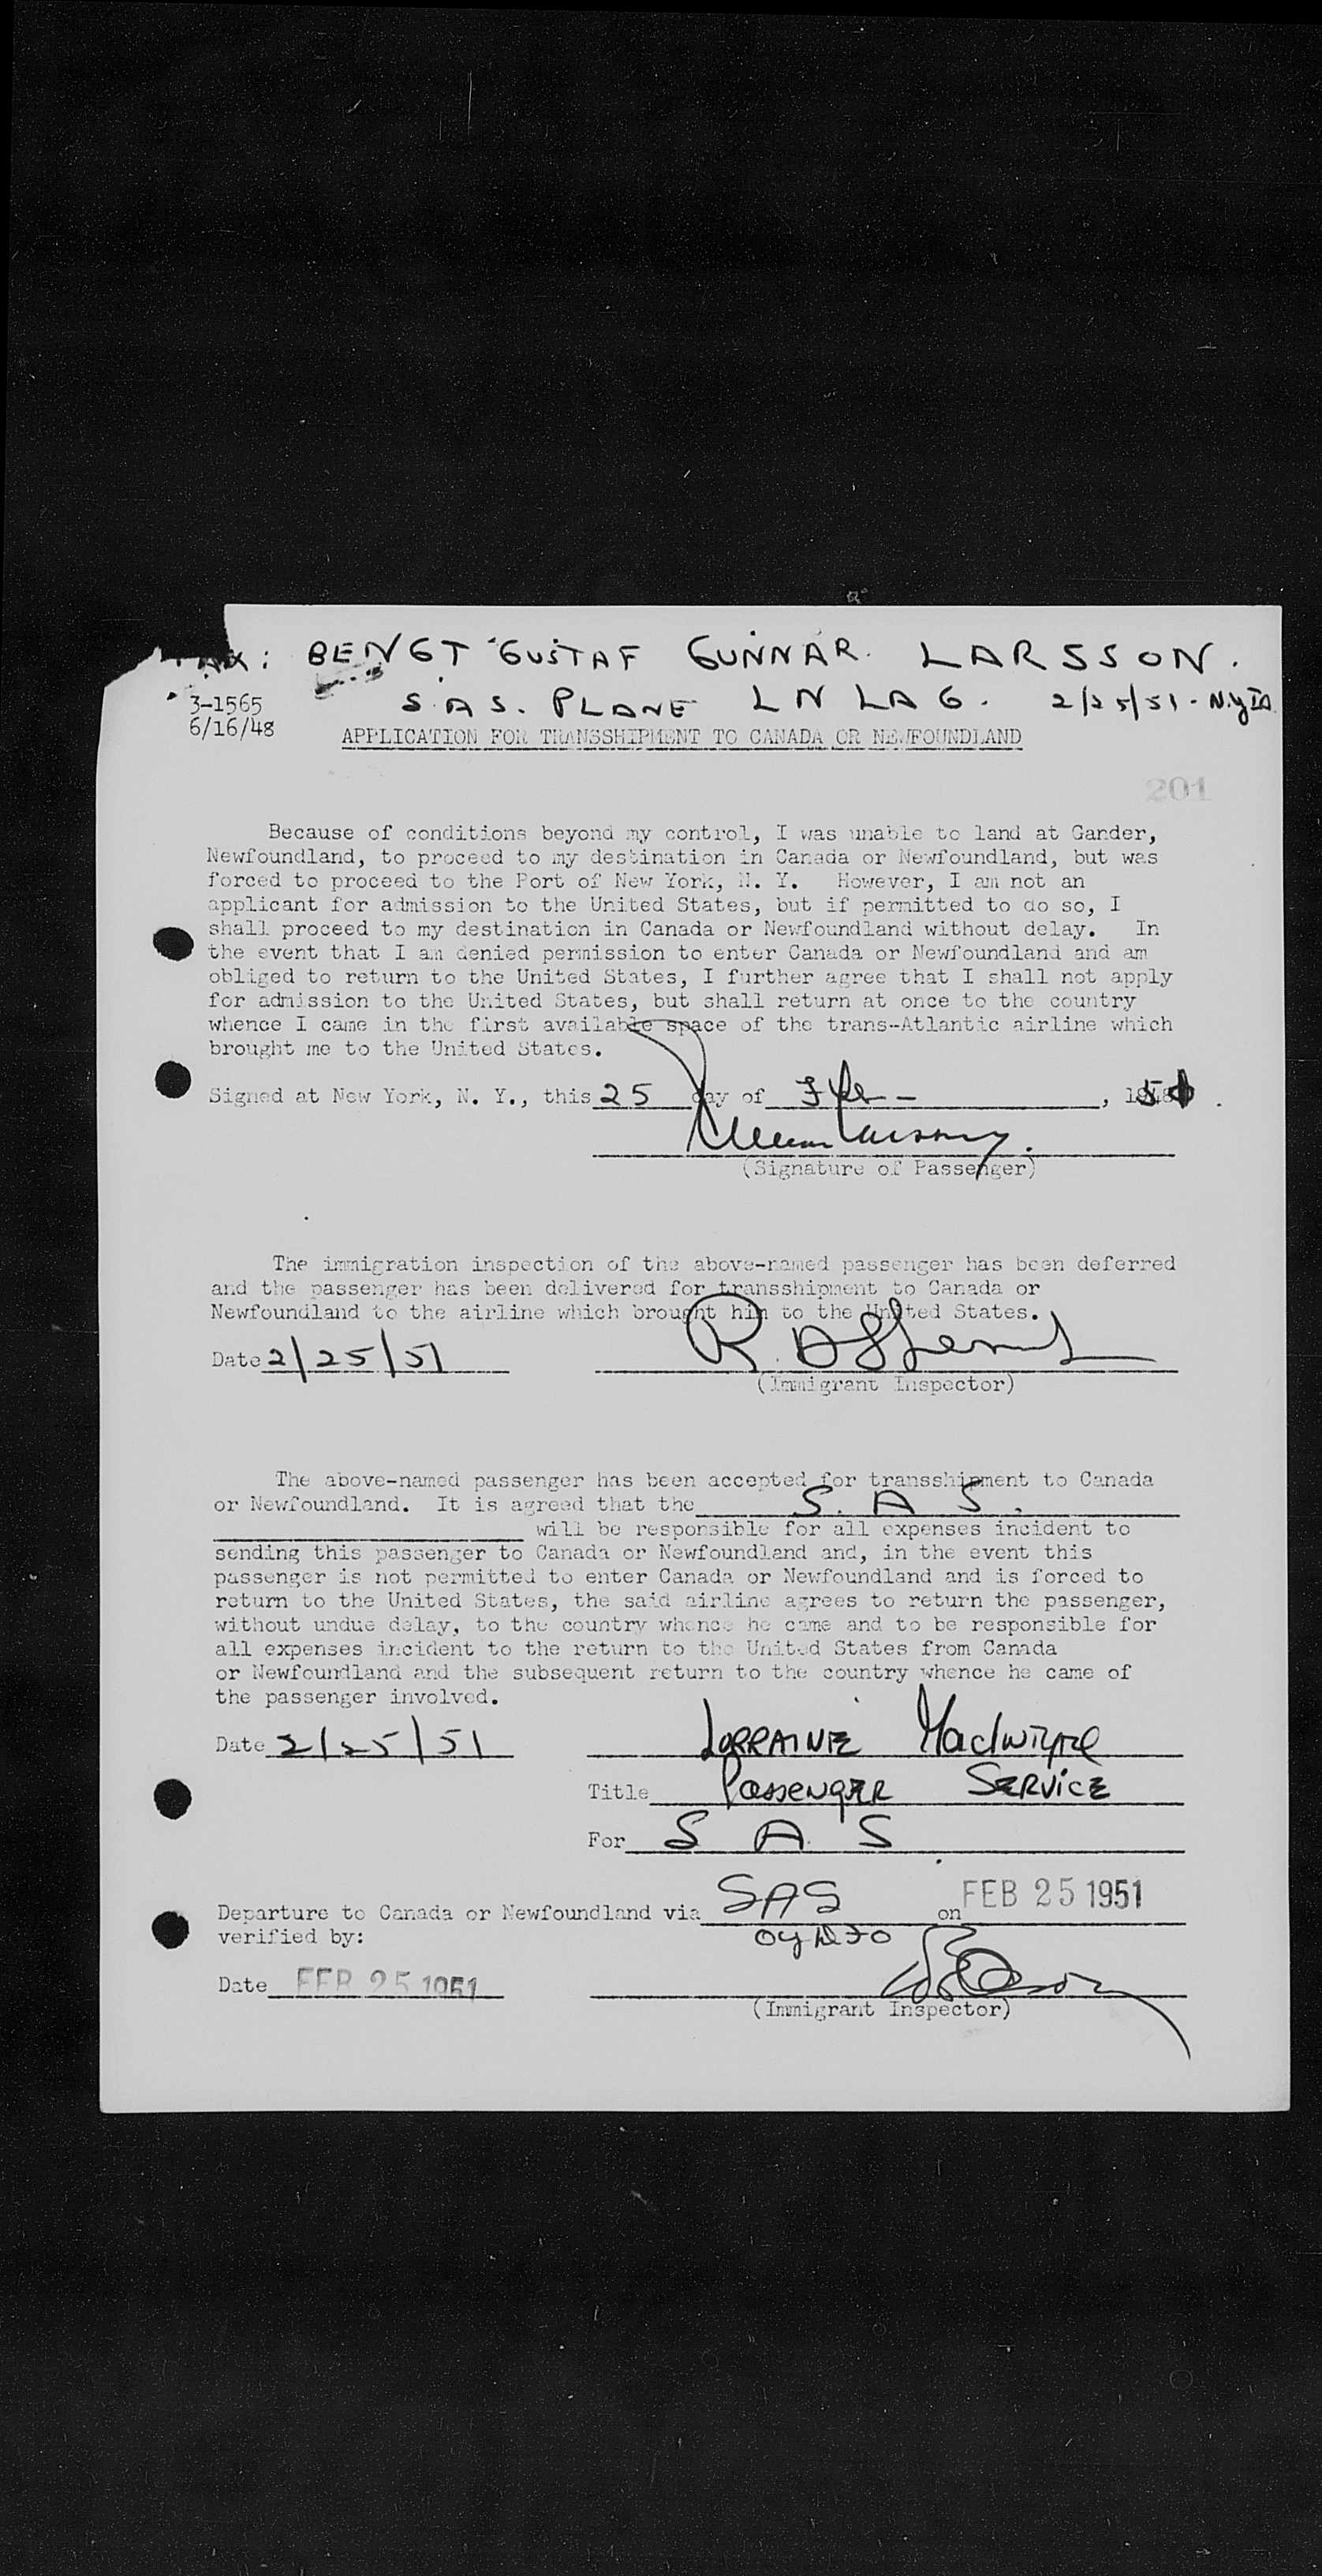 BENGT GUSTAF GUNNAR LARSSON.
3-1565
S.A.S. PLANE LN LAG. 2/25/51 - N.Y.IA
6/16/48
APPLICATION FOR TRANSSHIPMENT TO CANADA OR NEWFOUNDLAND
201
Because of conditions beyond my control, I was unable to land at Gander,
Newfoundland, to proceed to my destination in Canada or Newfoundland, but was
forced to proceed to the Port of New York, N. Y. However, I am not an
applicant for admission to the United States, but if permitted to do so, I
shall proceed to my destination in Canada or Newfoundland without delay. In
the event that I am denied permission to enter Canada or Newfoundland and am
obliged to return to the United States, I further agree that I shall not apply
for admission to the United States, but shall return at once to the country
whence I came in the first available space of the trans-Atlantic airline which
brought me to the United States.
Signed at New York, N. Y., this 25 day of Feb - , 1951.
(Signature of Passenger)
The immigration inspection of the above-named passenger has been deferred
and the passenger has been delivered for transshipment to Canada or
Newfoundland to the airline which brought him to the United States.
Date 2/25/51
(Immigrant Inspector)
The above-named passenger has been accepted for transshipment to Canada
or Newfoundland. It is agreed that the S. A S.
will be responsible for all expenses incident to
sending this passenger to Canada or Newfoundland and, in the event this
passenger is not permitted to enter Canada or Newfoundland and is forced to
return to the United States, the said airline agrees to return the passenger,
without undue delay, to the country whence he came and to be responsible for
all expenses incident to the return to the United States from Canada
or Newfoundland and the subsequent return to the country whence he came of
the passenger involved.
Date 2/25/51 LORRAINE MacIntyre
Title Passenger Service
For S A S
Departure to Canada or Newfoundland via SAS on FEB 25 1951
verified by:
Date FEB 25 1951
(Immigrant Inspector)